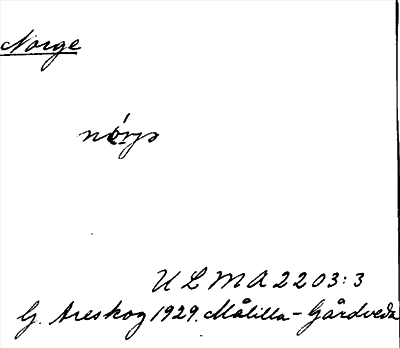 Norge
nórjə
ULMA 2203:3
G. Areskog 1929. Målilla-Gårdveda